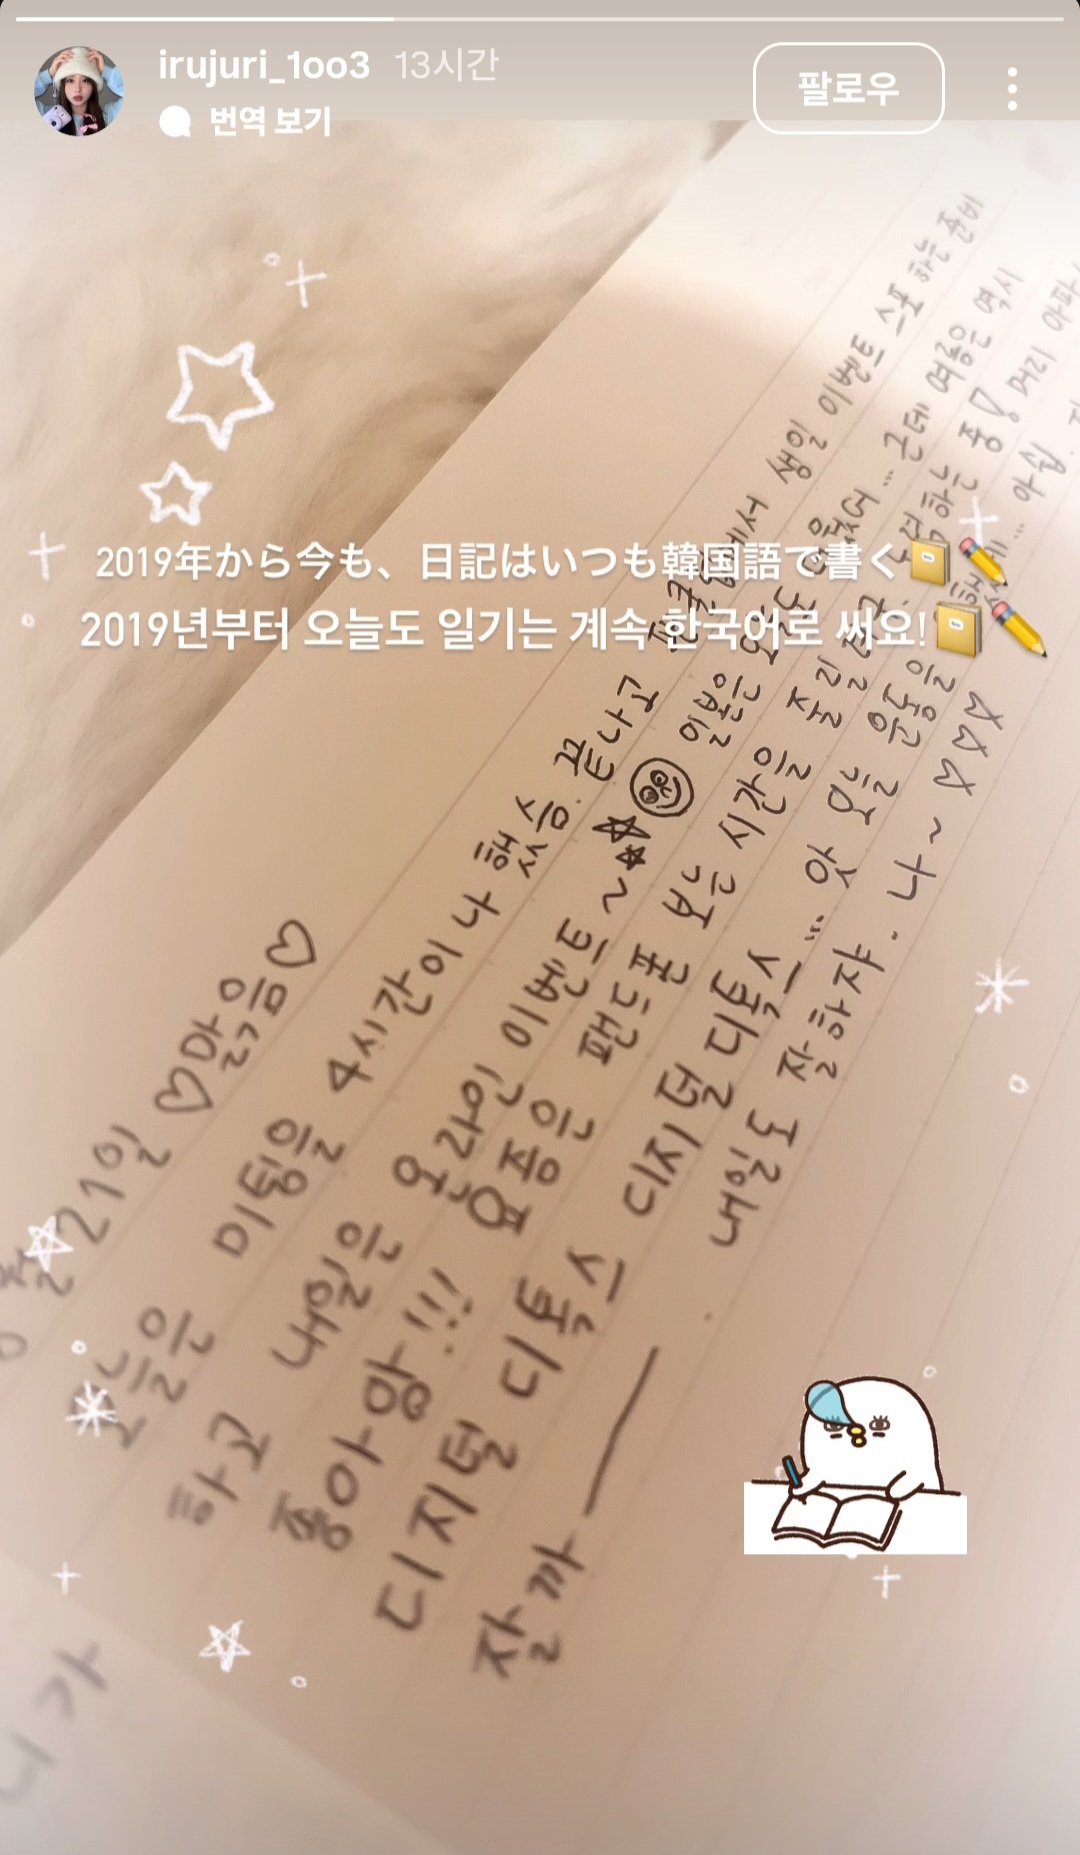 irujuri_1oo3 13시간
팔로우
번역 보기
2019年から今も、日記はいつも韓国語で書く
2019년부터 오늘도 일기는 계속 한국어로 써요!
21일 ♡맑음♡
오늘은 미팅을 4시간이나 했슴. 끝나고 생일 이벤트 스포 하는 준비
하고 내일은 온라인 이벤트~ 일본은 오늘도 근데 여름은 역시
좋아앙!!! 요즘은 팬드폰 보는 시간을 줄일 하는 중! 머리 아파
디지털 디톡스 디지털 디톡스... 앗 오늘 운동을 아십
잘까 내일도 잘하자. 나~ ☆☆☆
니가